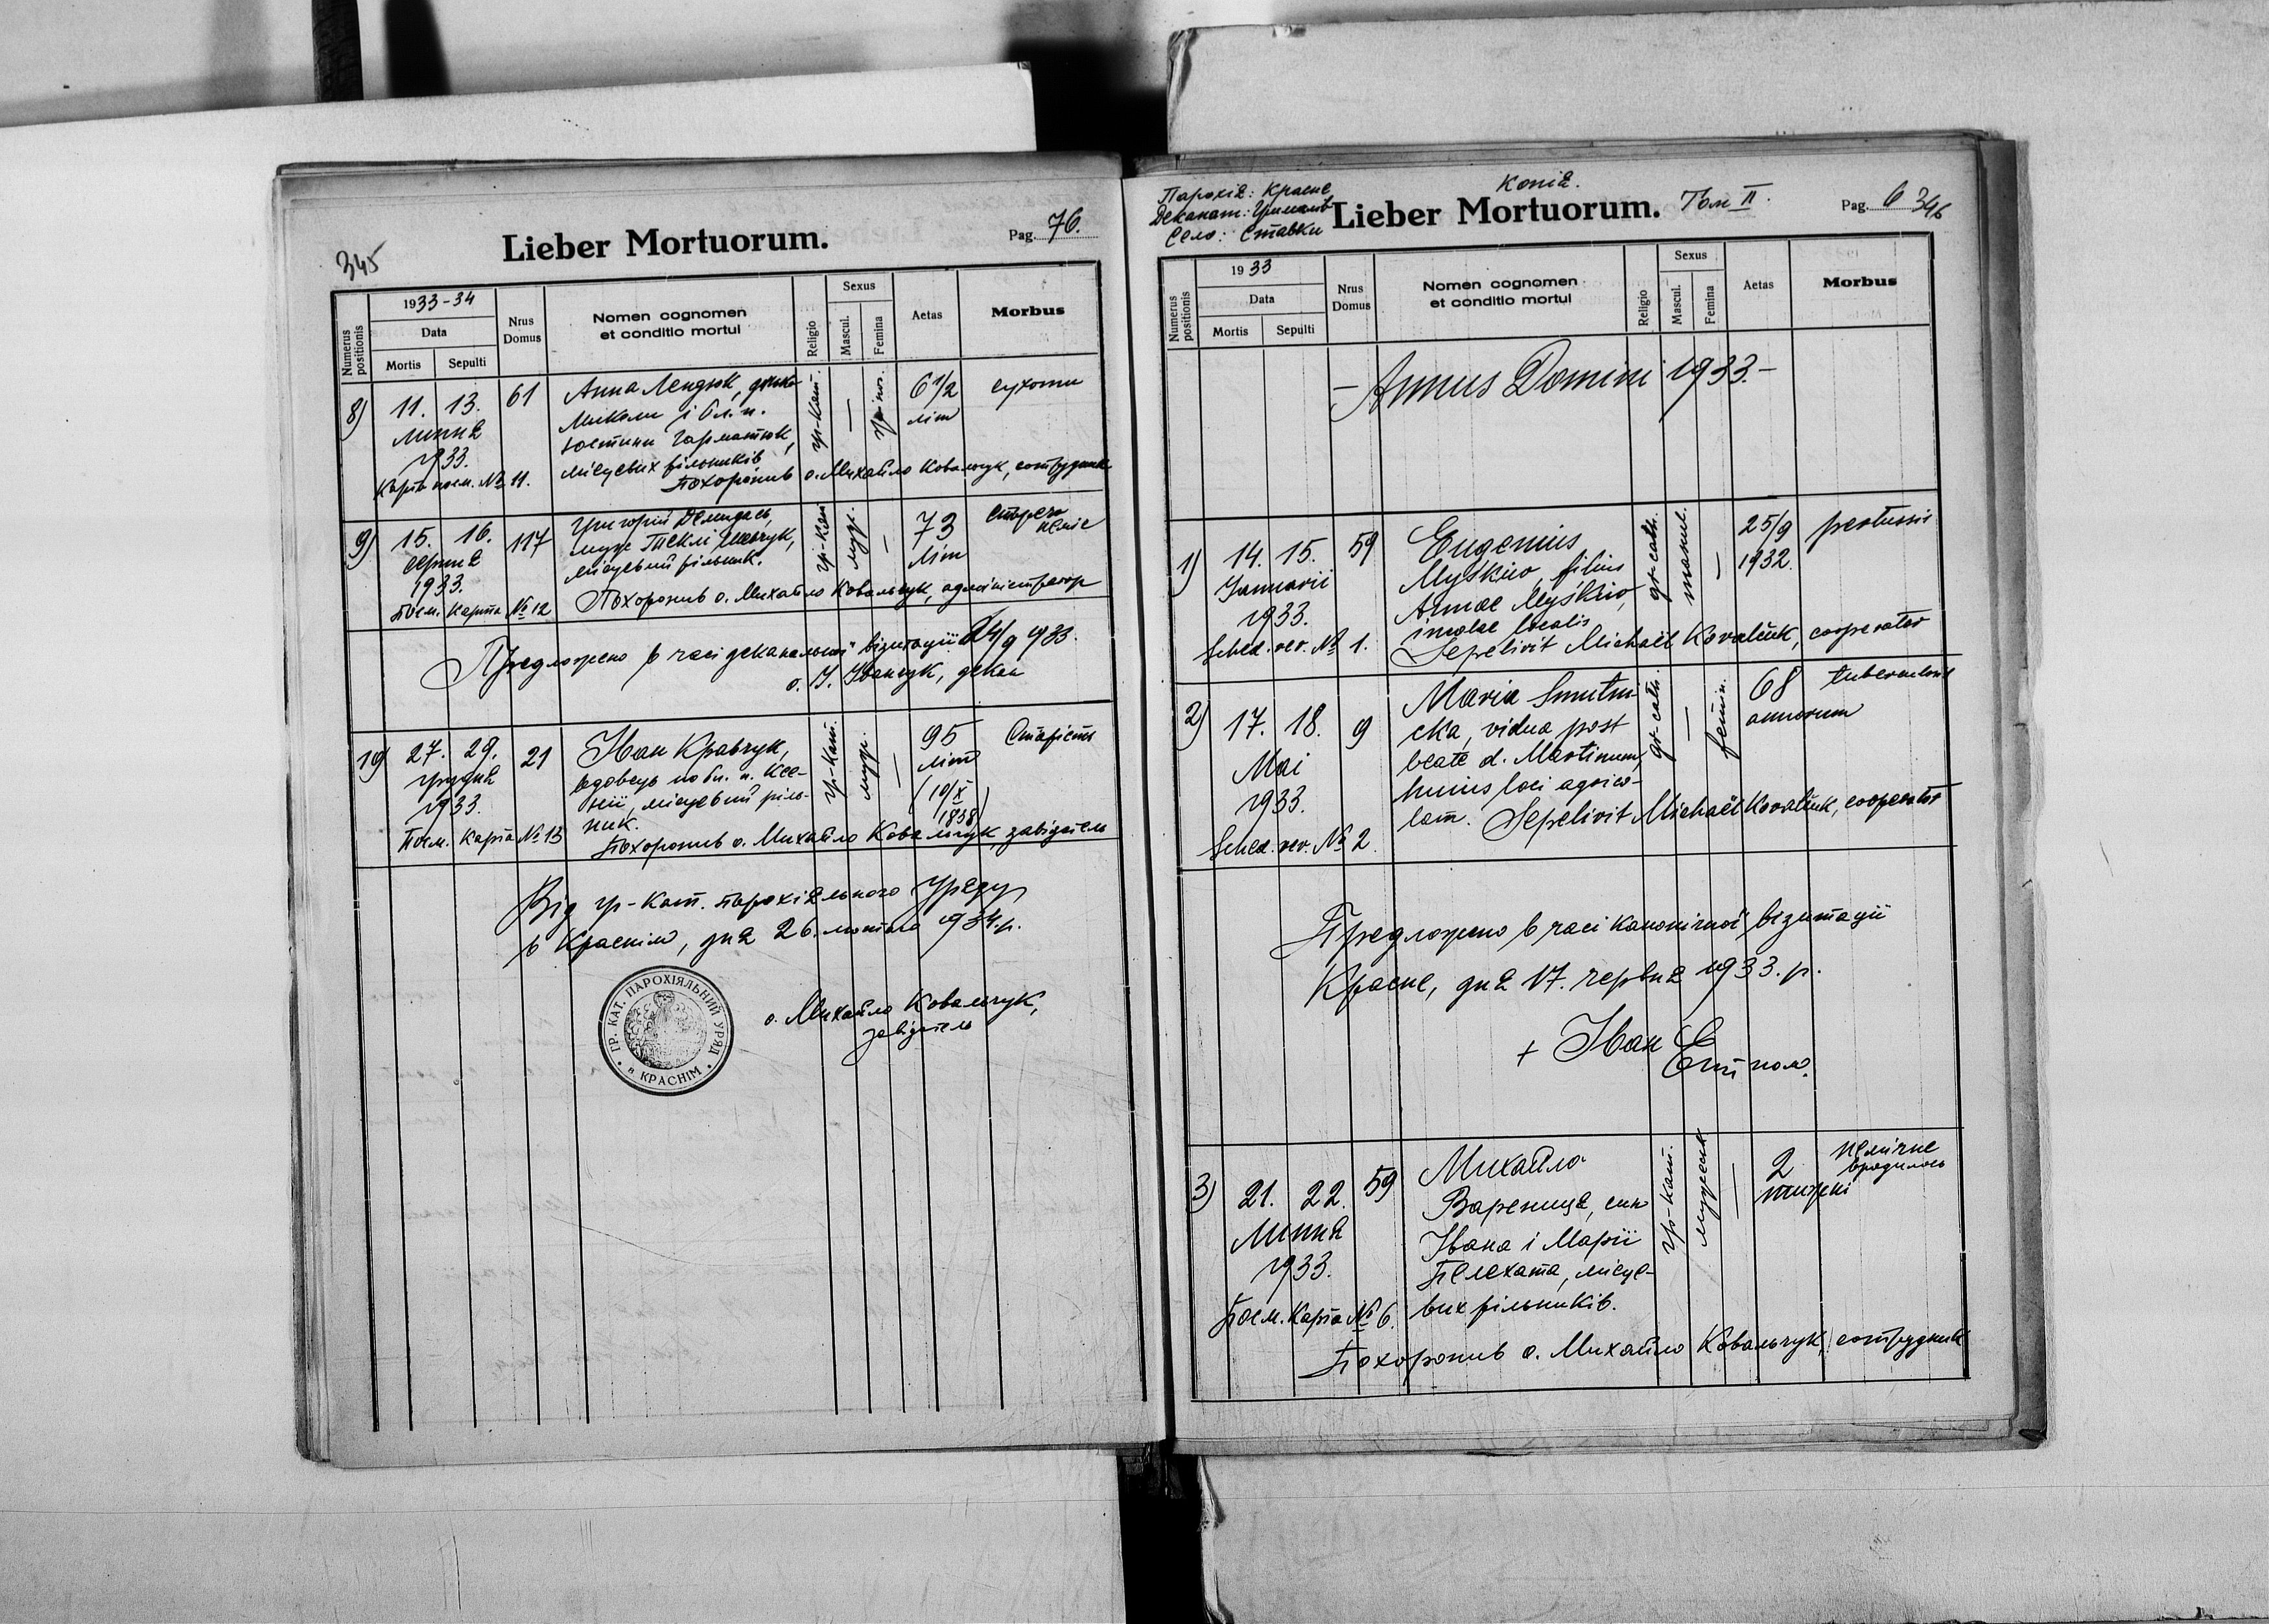 345
Lieber Mortuorum.
Pag. 76.
Numerus positionis
1933-34
Data
Mortis
Sepulti
Nrus Domus
Nomen cognomen
et conditio mortui
Religio
Sexus
Mascul.
Femina
Aetas
Morbus
8) 11. 13. 61 Анна Лендюк, дочка гр-кат. — 6 1/2 сухоти
липня Миколи і бл. п. літ
1933. Юстини Гарматюк,
місцевих рільників
Карта посм. № 11. Похоронив о. Михайло Ковальчук, сотрудник
9) 15. 16. 117 Григорій Демидась, гр-кат. муж. — 73
серпня муж Теклі Шевчук, літ
1933. місцевий рільник.
Посм. карта № 12 Похоронив о. Михайло Ковальчук, адміністратор
Предложено в часі деканальної візитації 24/9 933.
о. І. Іванчук, декан
10 27. 29. 21 Іван Кравчук, гр-кат. муж. — 95 Старість
грудня вдовець по бл. п. Ксе- літ
1933. нії, місцевий ріль- (10/X
ник. 1838)
Посм. Карта № 13 Похоронив о. Михайло Ковальчук, завідатель
Від гр-кат. парохіяльного уряду
в Краснім, дня 26. лютого 1934. р.
о. Михайло Ковальчук,
завідатель
ГР. КАТ. ПАРОХІЯЛЬНИЙ УРЯД
в КРАСНІМ
Парохія: Красне
Деканат: Грималів
Село: Ставки
Копія.
Lieber Mortuorum. Том II.
Pag. 6 346
Numerus positionis
1933
Data
Mortis
Sepulti
Nrus
Domus
Nomen cognomen
et conditio mortui
Religio
Sexus
Mascul.
Femina
Aetas
Morbus
— Annus Domini 1933. —
1) 14. 15. 59 Eugenius gr-cath. mascul. — 25/9 pertussis
Januarii Myśkiw, filius 1932.
1933. Annae Myśkiw,
incolae localis
Sched. rev. № 1. Sepelivit Michaël Kovalčuk, cooperator
2) 17. 18. 9 Maria Smutni gr-cath. — femin. 68 tuberculosis
Mai cka, vidua post annorum
1933. beate d. Martinum,
huius loci agrico-
lam. Sepelivit Michaël Kovalčuk, cooperator
Sched. rev. № 2.
Предложено в часі канонічної візитації
Красне, дня 17. червня 1933. р.
+ Іван
Еп. пом.
3) 21. 22. 59 Михайло гр-кат. мужеск — 2 немічне
Варениця, син тижні вродилось
Липня Івана і Марії
1933. Пелехата, місце-
Посм. Карта № 6. вих рільників.
Похоронив о. Михайло Ковальчук, сотрудник